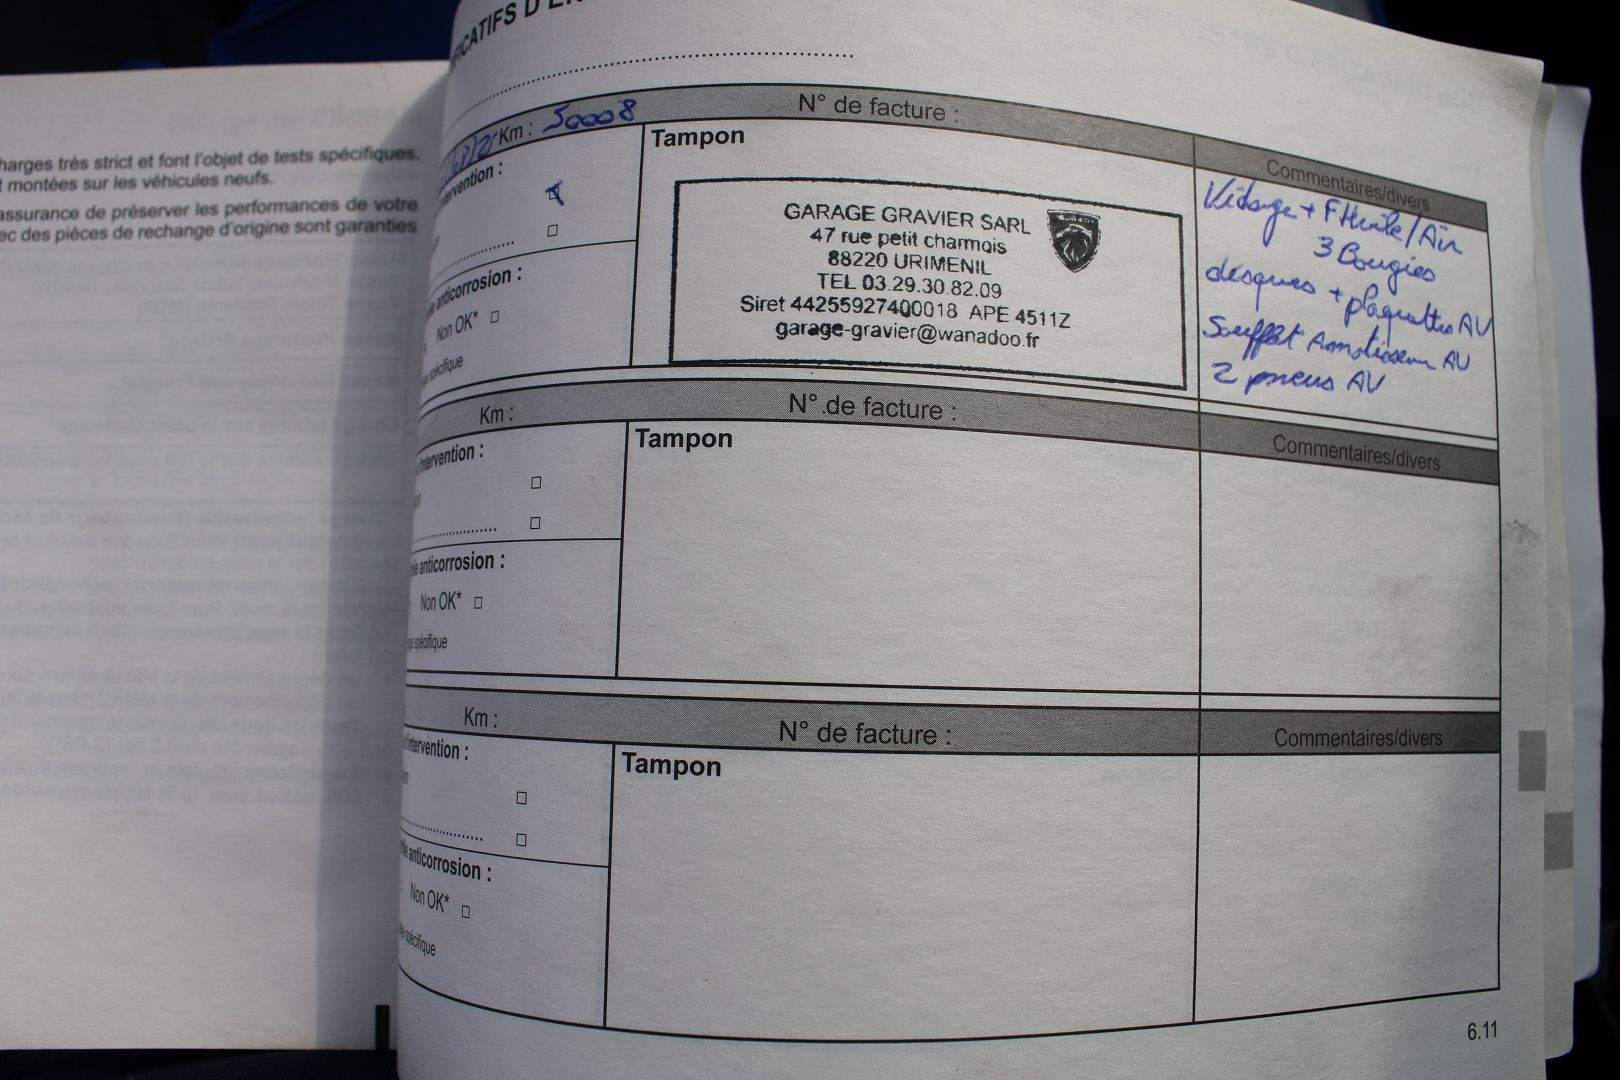 harges très strict et font l'objet de tests spécifiques.
t montées sur les véhicules neufs.
assurance de préserver les performances de votre
ec des pièces de rechange d'origine sont garanties
IFICATIFS D'EN
Km : 50008
N° de facture :
Commentaires/divers
ntervention :
Tampon
GARAGE GRAVIER SARL
47 rue petit charmois
88220 URIMENIL
TEL 03.29.30.82.09
Siret 44255927400018 APE 4511Z
garage-gravier@wanadoo.fr
Vidange + F Huile/Air
3 Bougies
desques + plaquettes AV
Soufflet Amotisseur AV
2 pneus AV
anticorrosion :
Non OK*
spécifique
Km :
N° de facture :
Commentaires/divers
'intervention :
Tampon
anticorrosion :
Non OK*
spécifique
Km :
N° de facture :
Commentaires/divers
d'intervention :
Tampon
anticorrosion :
Non OK*
spécifique
6.11